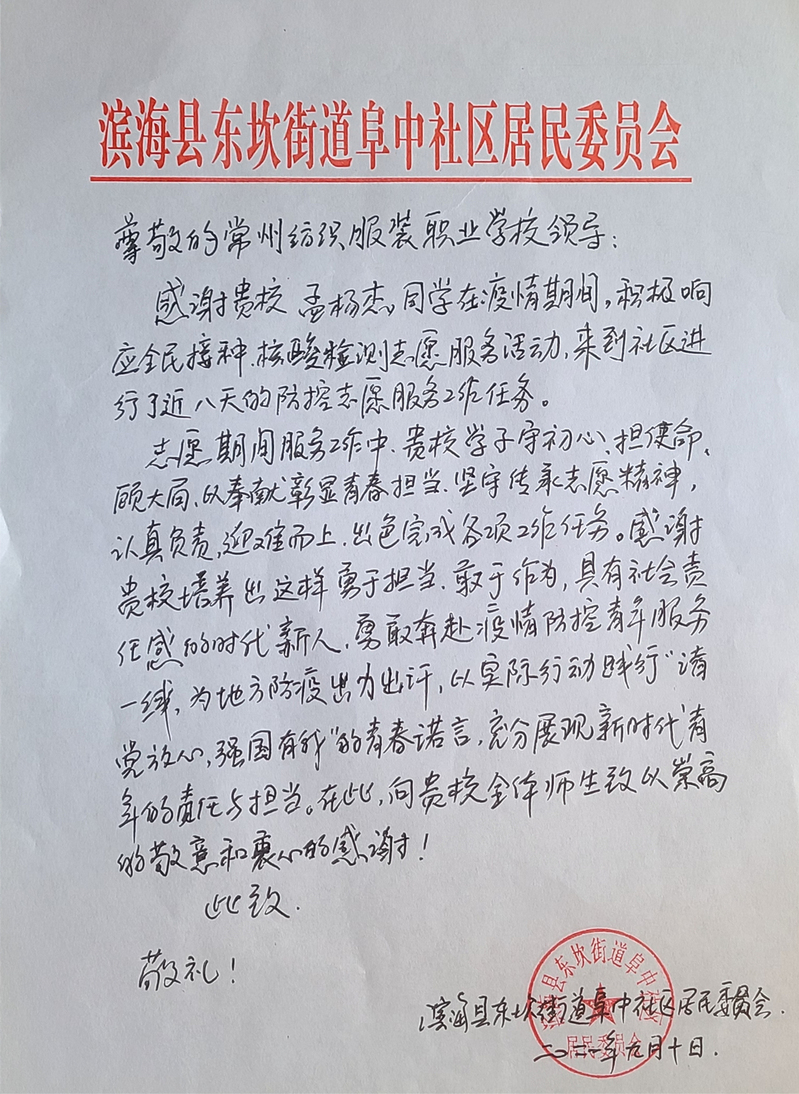 滨海县东坎街道阜中社区居民委员会
尊敬的常州纺织服装职业学校领导：
感谢贵校孟杨杰同学在疫情期间，积极响
应全民接种、核酸检测志愿服务活动，来到社区进
行了近八天的防控志愿服务工作任务。
志愿期间服务工作中、贵校学子守初心、担使命、
顾大局、以奉献彰显青春担当、坚守传承志愿精神，
认真负责，迎难而上、出色完成各项工作任务。感谢
贵校培养出这样勇于担当、敢于作为，具有社会责
任感的时代新人、勇敢奔赴疫情防控青年服务
一线，为地方防疫出力出汗，以实际行动践行“请
党放心，强国有我”的青春诺言，充分展现新时代青
年的责任与担当。在此，向贵校全体师生致以崇高
的敬意和衷心的感谢！
此致、
敬礼！
滨海县东坎街道阜中社区居民委员会
二〇二一年九月十日、
滨海县东坎街道阜中社区
居民委员会